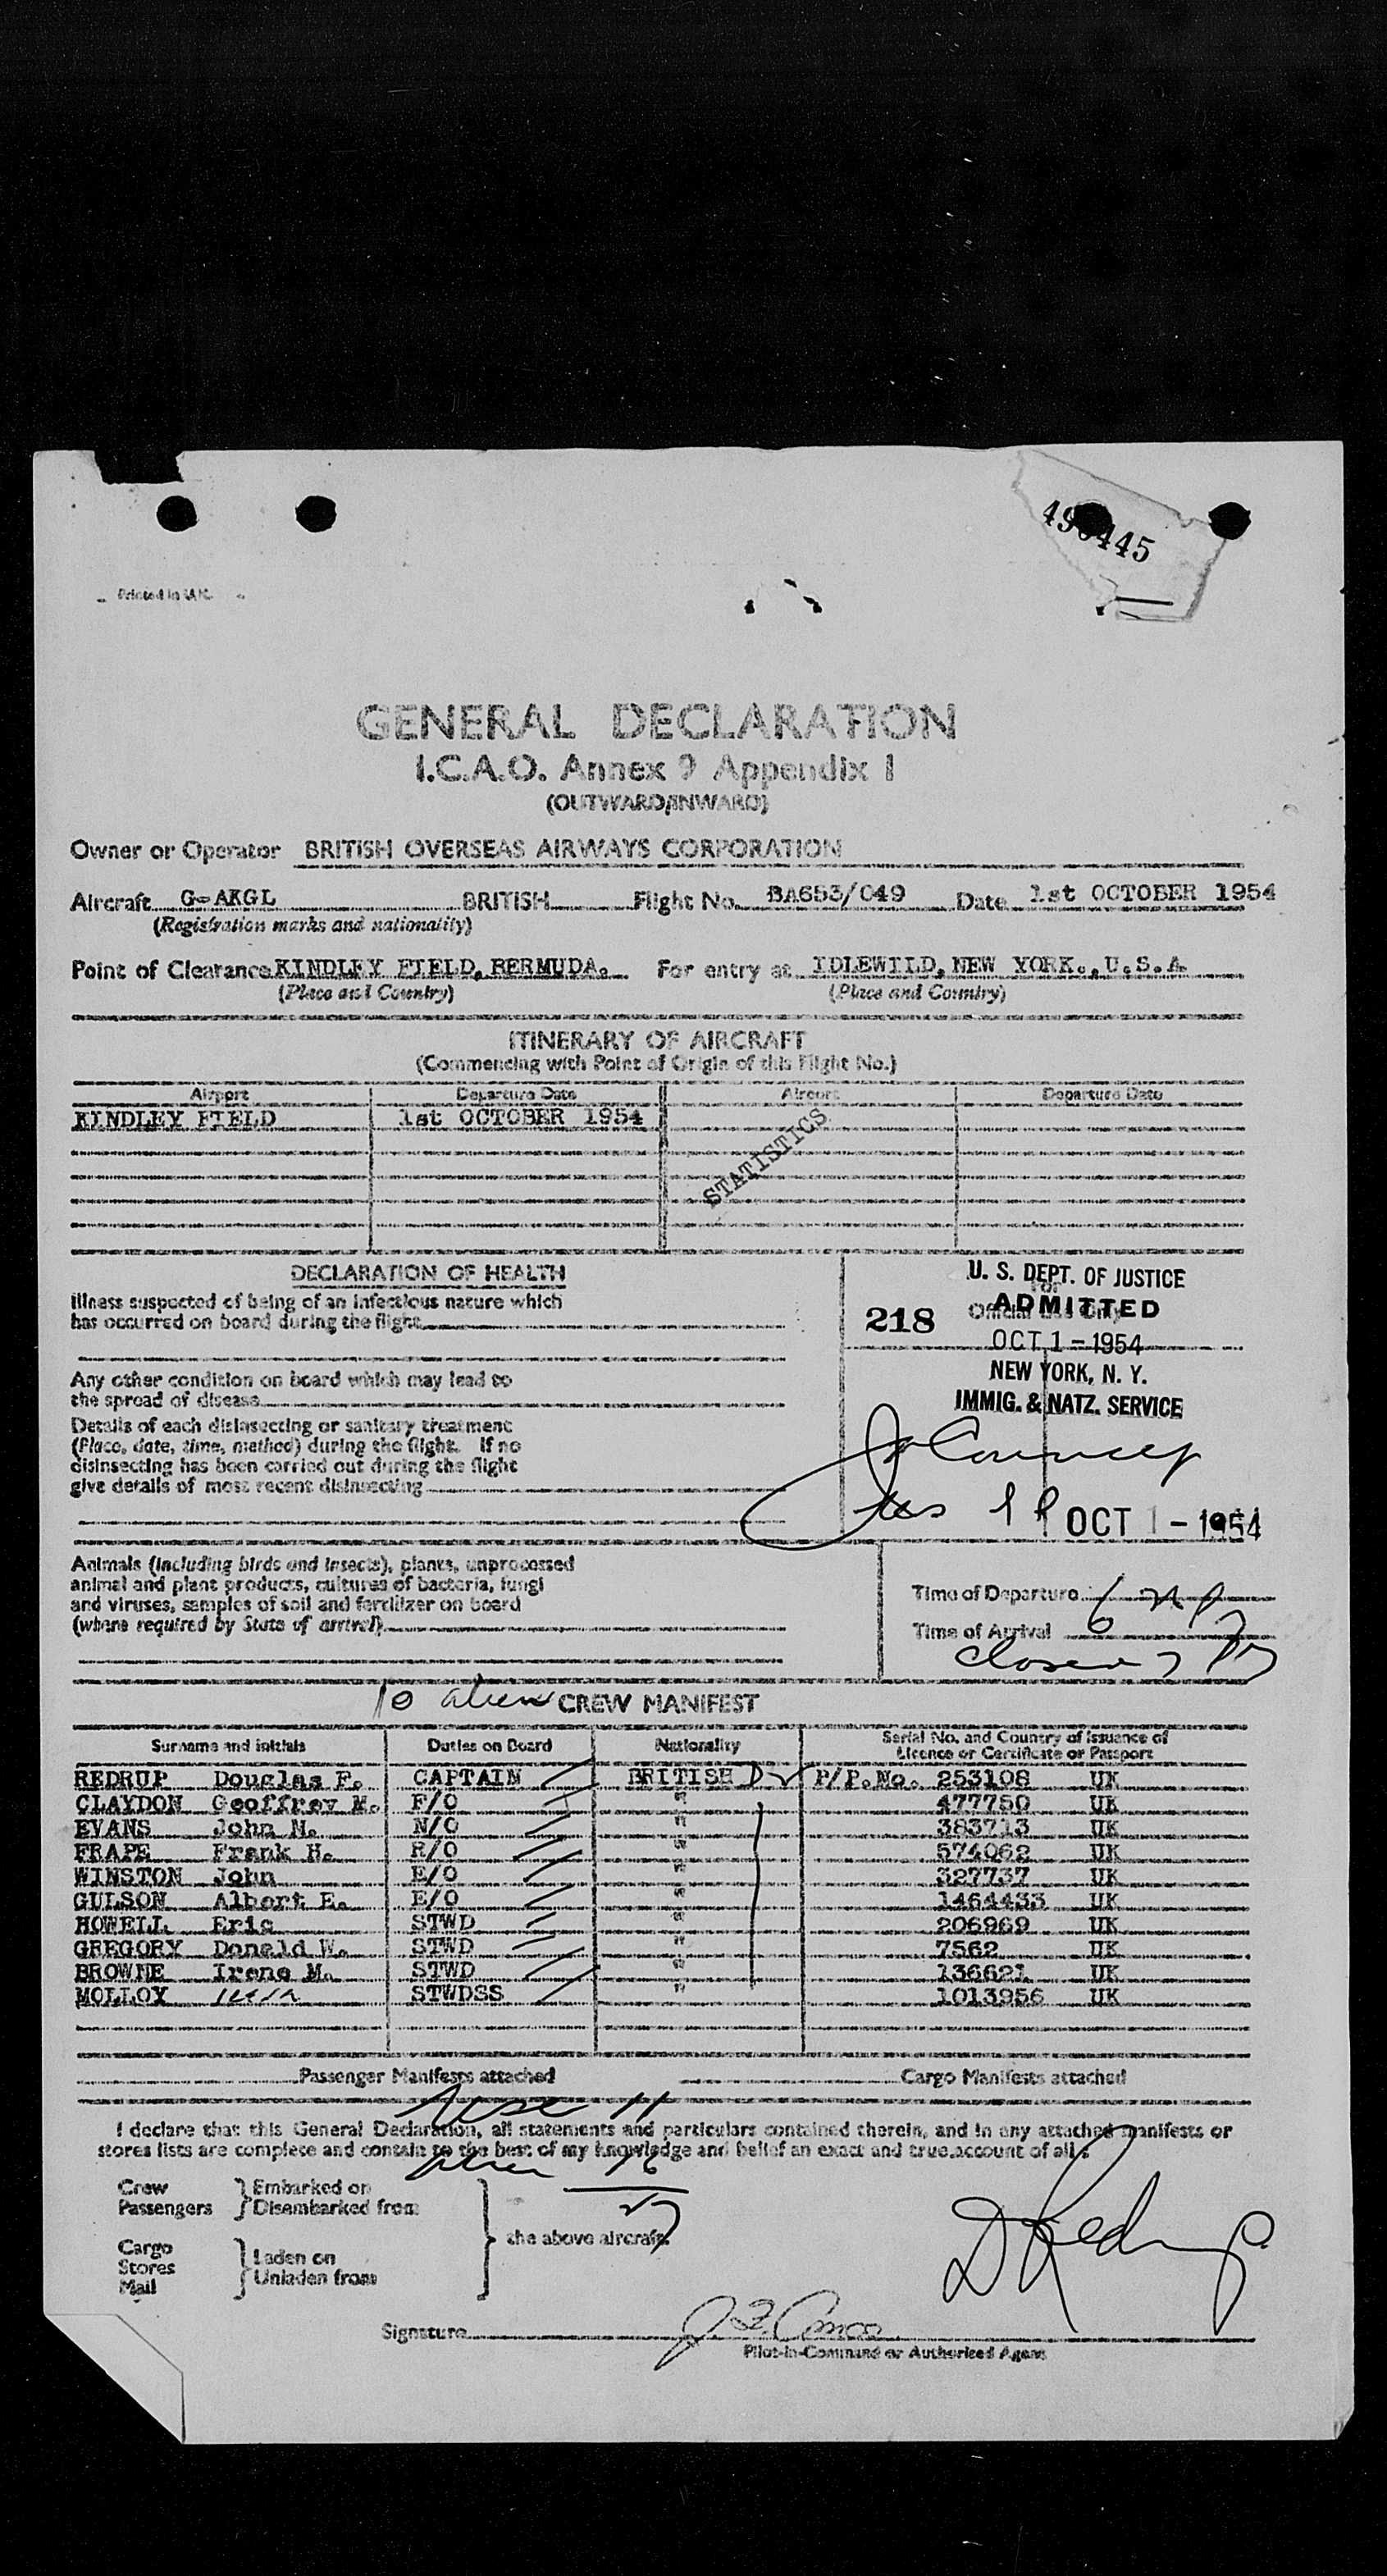 Printed in U.K.
GENERAL DECLARATION
I.C.A.O. Annex 9 Appendix I
(OUTWARD/INWARD)
Owner or Operator BRITISH OVERSEAS AIRWAYS CORPORATION
Aircraft G-AKGL BRITISH Flight No. BA653/049 Date 1st OCTOBER 1954
(Registration marks and nationality)
Point of Clearance KINDLEY FIELD, BERMUDA. For entry at IDLEWILD, NEW YORK., U.S.A.
(Place and Country) (Place and Country)
ITINERARY OF AIRCRAFT
(Commencing with Point of Origin of this Flight No.)
Airport Departure Date Airport Departure Date
KINDLEY FIELD 1st OCTOBER 1954
STATISTICS
DECLARATION OF HEALTH
Illness suspected of being of an infectious nature which
has occurred on board during the flight
Any other condition on board which may lead to
the spread of disease
Details of each disinsecting or sanitary treatment
(Place, date, time, method) during the flight. If no
disinsecting has been carried out during the flight
give details of most recent disinsecting
For
Official Use Only
218
U. S. DEPT. OF JUSTICE
ADMITTED
OCT 1 - 1954
NEW YORK, N. Y.
IMMIG. & NATZ. SERVICE
OCT 1 - 1954
Animals (including birds and insects), plants, unprocessed
animal and plant products, cultures of bacteria, fungi
and viruses, samples of soil and fertilizer on board
(where required by State of arrival)
Time of Departure
Time of Arrival
10 alien CREW MANIFEST
Surname and initials Duties on Board Nationality Serial No. and Country of Issuance of
Licence or Certificate or Passport
REDRUP Douglas F. CAPTAIN BRITISH P/P.No. 253108 UK
CLAYDON Geoffrey M. F/O " 477750 UK
EVANS John N. N/O " 383713 UK
FRAPE Frank H. R/O " 574062 UK
WINSTON John E/O " 327737 UK
GULSON Albert E. E/O " 1464433 UK
HOWELL Eric STWD " 206969 UK
GREGORY Donald W. STWD " 7562 UK
BROWNE Irene M. STWD " 136621 UK
MOLLOY STWDSS " 1013956 UK
Passenger Manifests attached Cargo Manifests attached
I declare that this General Declaration, all statements and particulars contained therein, and in any attached manifests or
stores lists are complete and contain to the best of my knowledge and belief an exact and true account of all :
Crew
Passengers
Embarked on
Disembarked from
Cargo
Stores
Mail
Laden on
Unladen from
the above aircraft.
D Redrup.
Signature
Pilot-in-Command or Authorised Agent